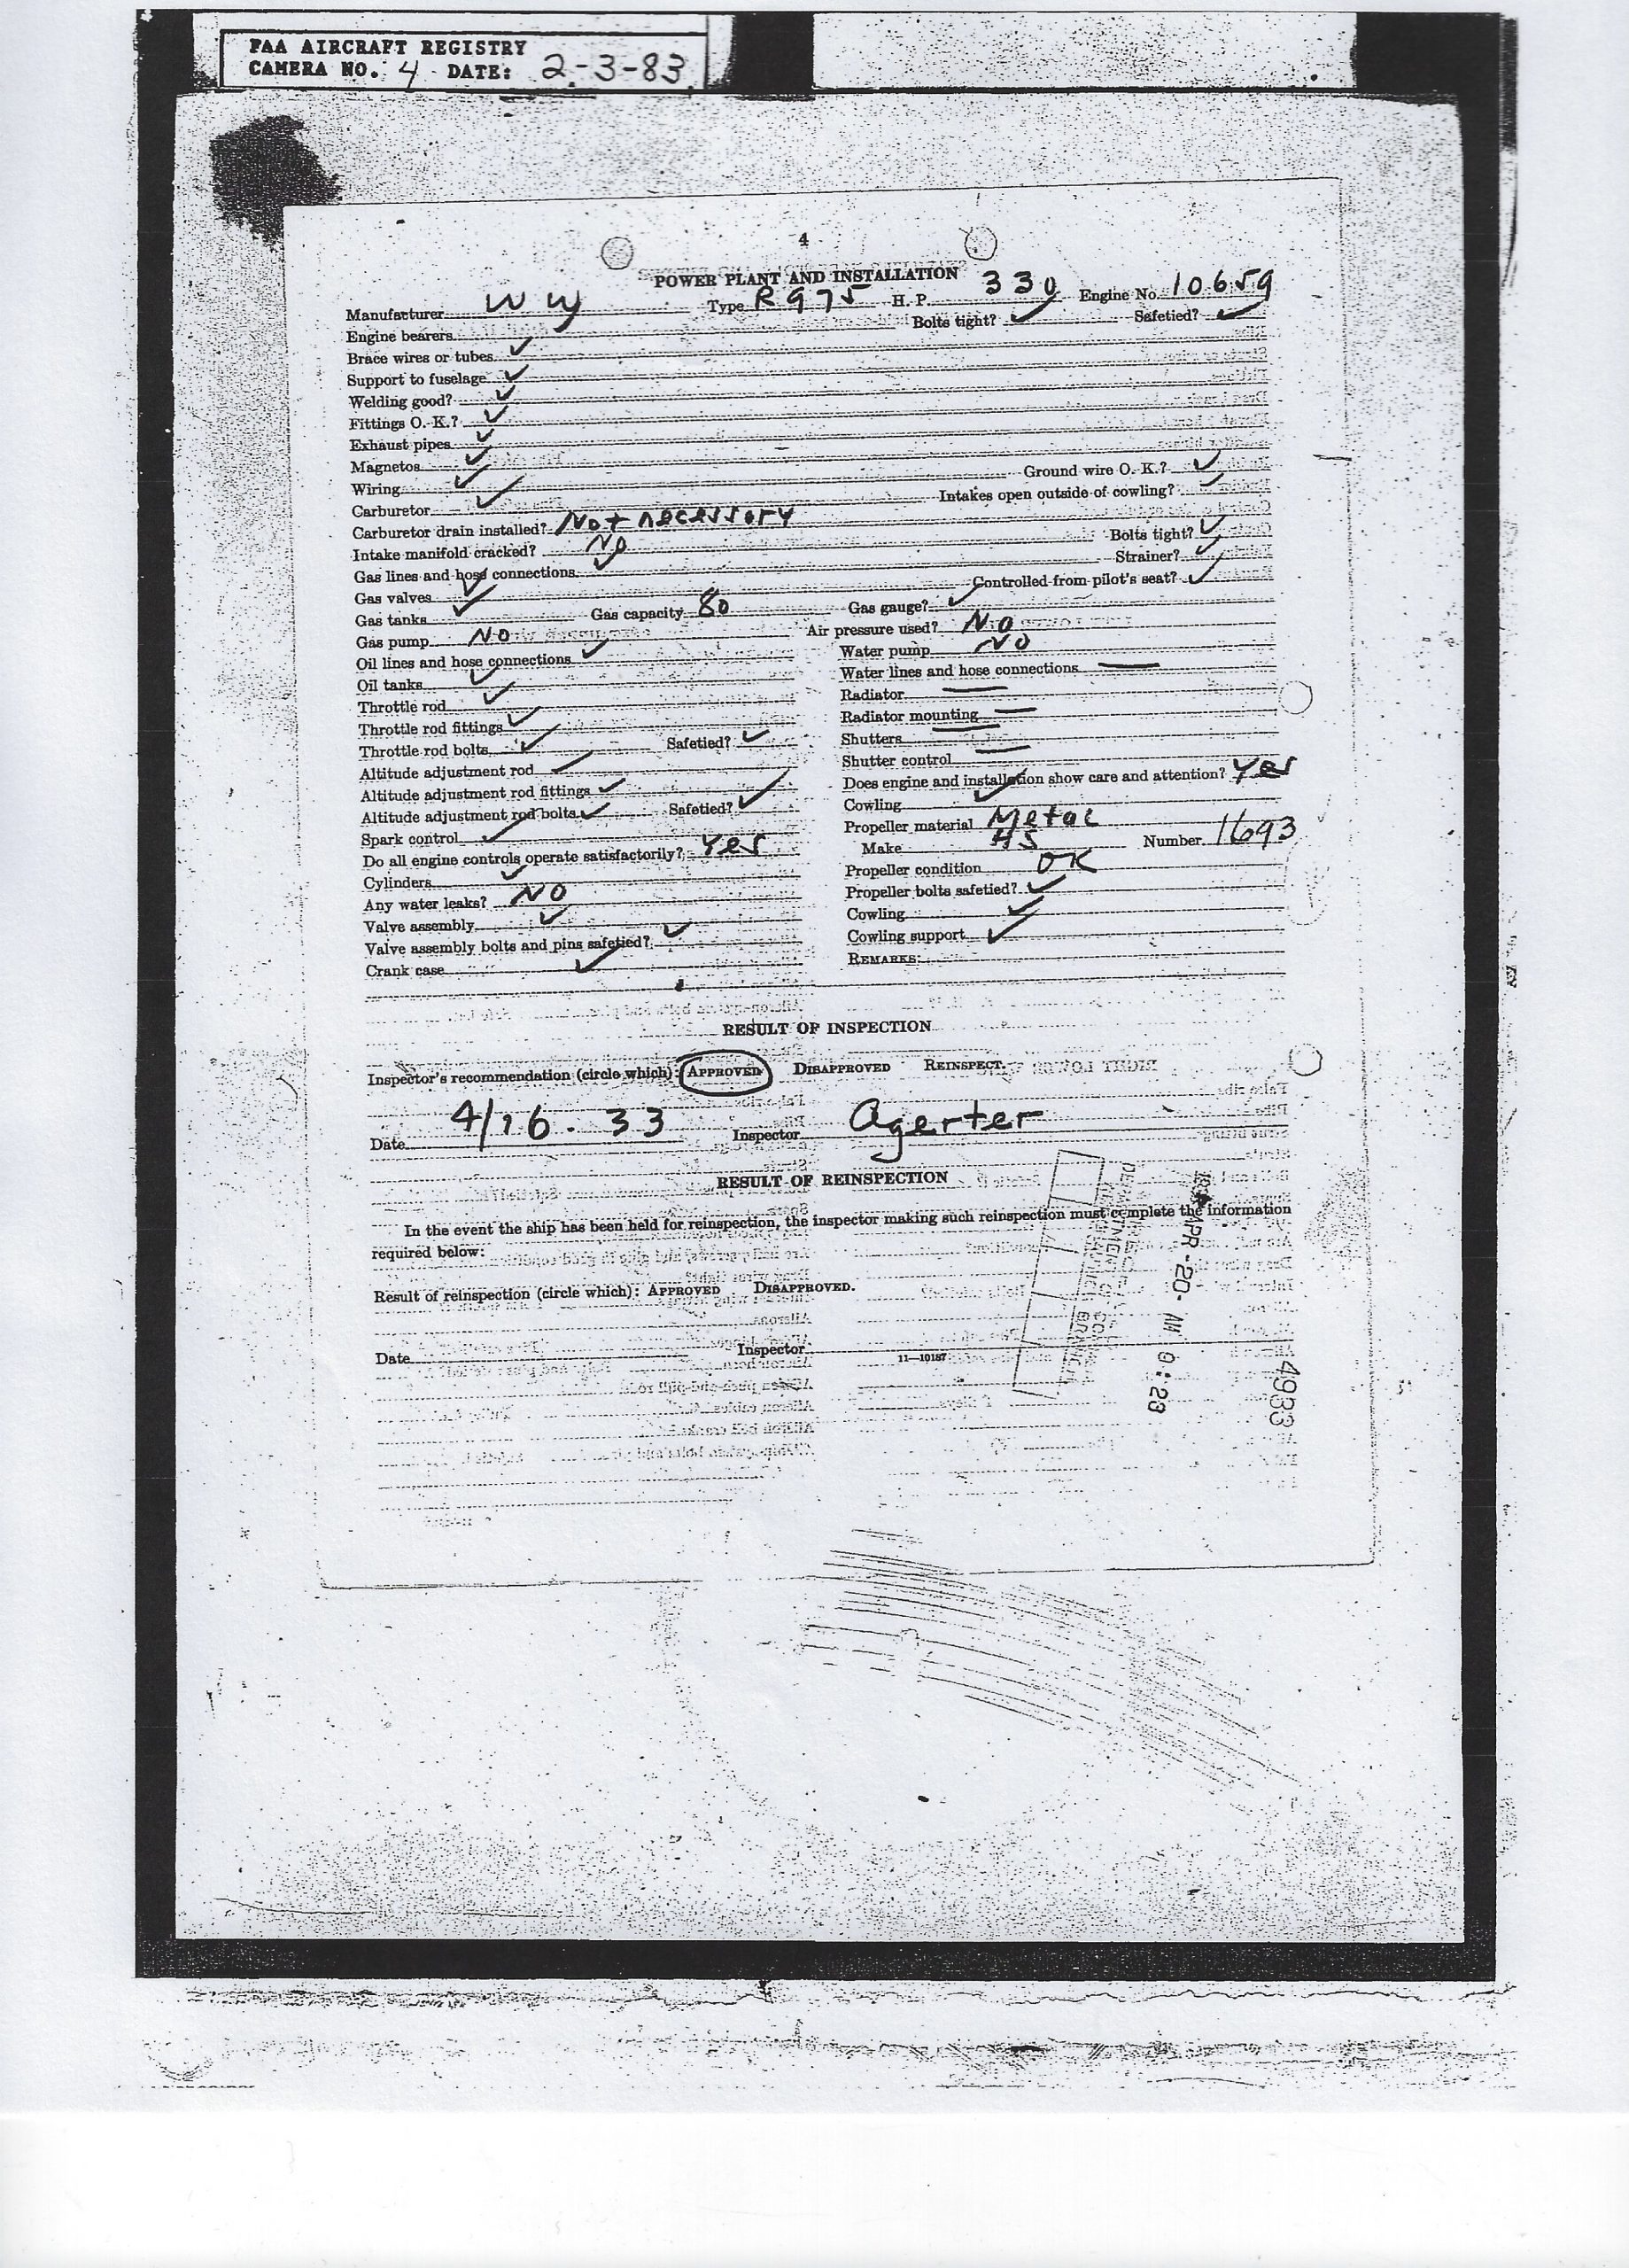 FAA AIRCRAFT REGISTRY
CAMERA NO. 4 DATE: 2-3-83
4
POWER PLANT AND INSTALLATION
Manufacturer W W Type R 975 H. P. 330 Engine No. 10659
Engine bearers Bolts tight? ✓ Safetied? ✓
Brace wires or tubes ✓
Support to fuselage ✓
Welding good? ✓
Fittings O. K.? ✓
Exhaust pipes ✓
Magnetos ✓
Wiring ✓ Ground wire O. K.? ✓
Carburetor ✓ Intakes open outside of cowling? ✓
Carburetor drain installed? Not necessory
Intake manifold cracked? NO Bolts tight? ✓
Gas lines and hose connections ✓ Strainer? ✓
Gas valves ✓ Controlled from pilot's seat? ✓
Gas tanks ✓ Gas capacity 80 Gas gauge? ✓
Gas pump NO Air pressure used? NO
Oil lines and hose connections ✓ Water pump NO
Oil tanks ✓ Water lines and hose connections —
Throttle rod ✓ Radiator —
Throttle rod fittings ✓ Radiator mounting —
Throttle rod bolts ✓ Safetied? ✓ Shutters —
Altitude adjustment rod ✓ Shutter control —
Altitude adjustment rod fittings ✓ Does engine and installation show care and attention? Yes
Altitude adjustment rod bolts ✓ Safetied? ✓ Cowling ✓
Spark control ✓ Propeller material Metal
Do all engine controls operate satisfactorily? Yes Make HS Number 1693
Cylinders ✓ Propeller condition OK
Any water leaks? NO Propeller bolts safetied? ✓
Valve assembly ✓ Cowling ✓
Valve assembly bolts and pins safetied? ✓ Cowling support ✓
Crank case ✓ REMARKS:
RESULT OF INSPECTION
Inspector's recommendation (circle which): APPROVED DISAPPROVED REINSPECT.
Date 4/16.33 Inspector Agerter
RESULT OF REINSPECTION
In the event the ship has been held for reinspection, the inspector making such reinspection must complete the information
required below:
Result of reinspection (circle which): APPROVED DISAPPROVED.
Date Inspector
11—10187
APR -20- AM 9:29
4933